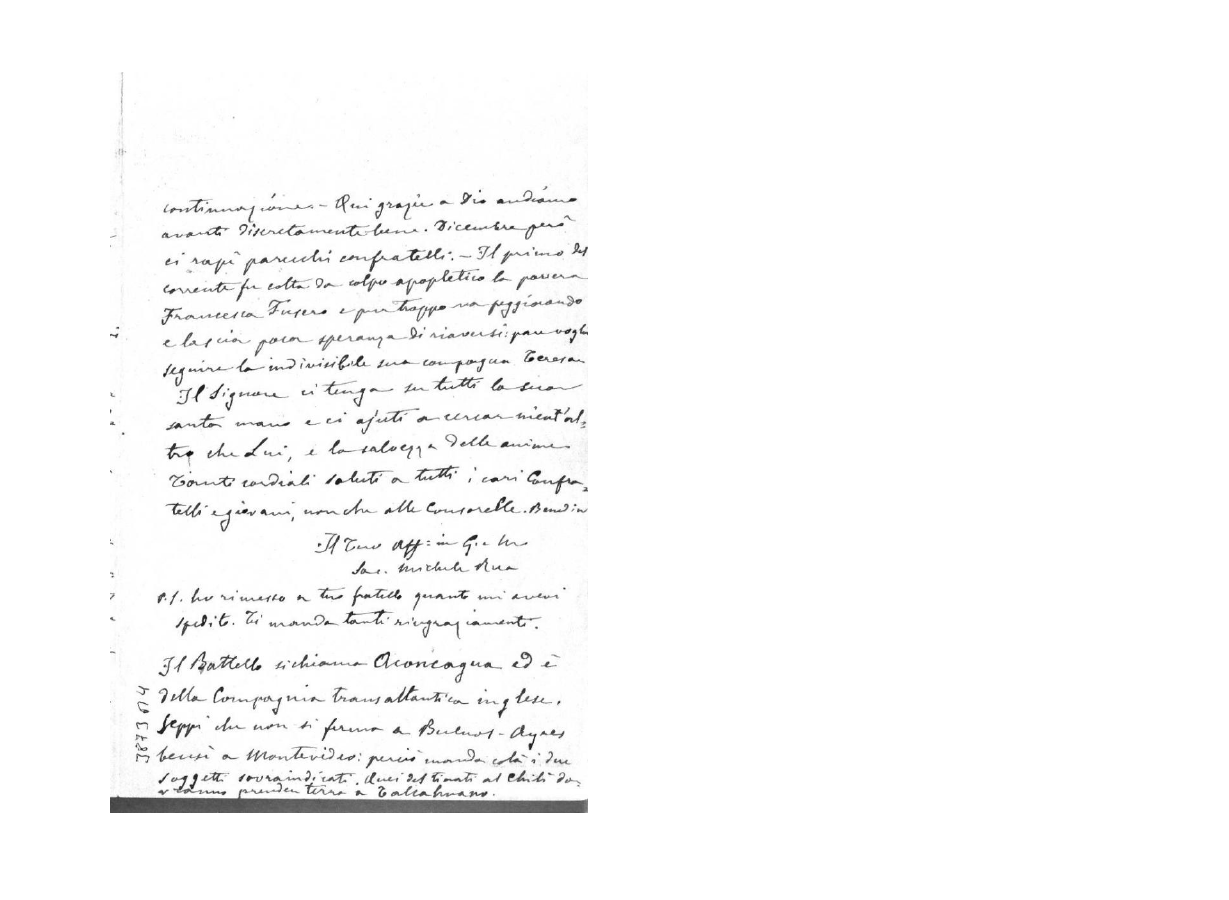 continuazione. - Qui grazie a Dio andiamo
avanti discretamente bene. Dicembre però
ci rapì parecchi confratelli. - Il primo del
corrente fu colta da colpo apopletico la povera
Francesca Fusero e pur troppo va peggiorando
e lascia poca speranza di riaversi: pare voglia
seguire la indivisibile sua compagna Teresa
Il Signore ci tenga su tutti la sua
santa mano e ci ajuti a cercar nient'al-
tro che Lui, e la salvezza delle anime
Tanti cordiali saluti a tutti i cari Confra-
telli e giovani, non che alle Consorelle.
Il Tuo Aff: in G. e M.
Sac. Michele Rua
P.S. ho rimesso a tuo fratello quanto mi avevi
spedito. Ti manda tanti ringraziamenti.
Il Battello si chiama Aconcagua ed è
della Compagnia transatlantica inglese.
Seppi che non si ferma a Buenos-Ayres
bensì a Montevideo: perciò manda colà i due
soggetti sovraindicati. Quei destinati al Chilì do-
vranno prender terra a Talcahuano.